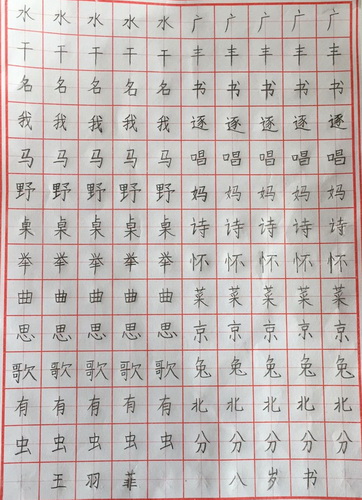 水水水水水广广广广广
干干干干干丰丰丰丰丰
名名名名名书书书书书
我我我我我逐逐逐逐逐
马马马马马唱唱唱唱唱
野野野野野妈妈妈妈妈
桌桌桌桌桌诗诗诗诗诗
举举举举举怀怀怀怀怀
曲曲曲曲曲菜菜菜菜菜
思思思思思京京京京京
歌歌歌歌歌兔兔兔兔兔
有有有有有北北北北北
虫虫虫虫虫分分分分分
王羽菲 八岁书